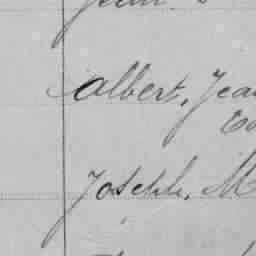 Jean
Albert, Jea
Joseph, M